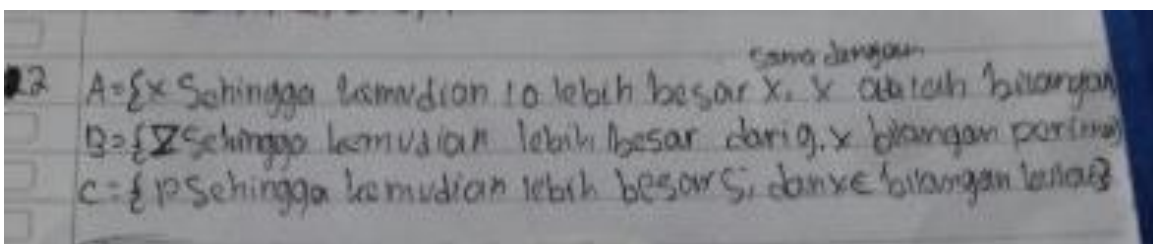 sama dengan
2 A={x Sehingga kemudian 10 lebih besar x, x adalah bilangan
B={V Sehingga kemudian lebih besar dari 9, x bilangan
C={ p Sehingga kemudian lebih besar 5, dan x ∈ bilangan